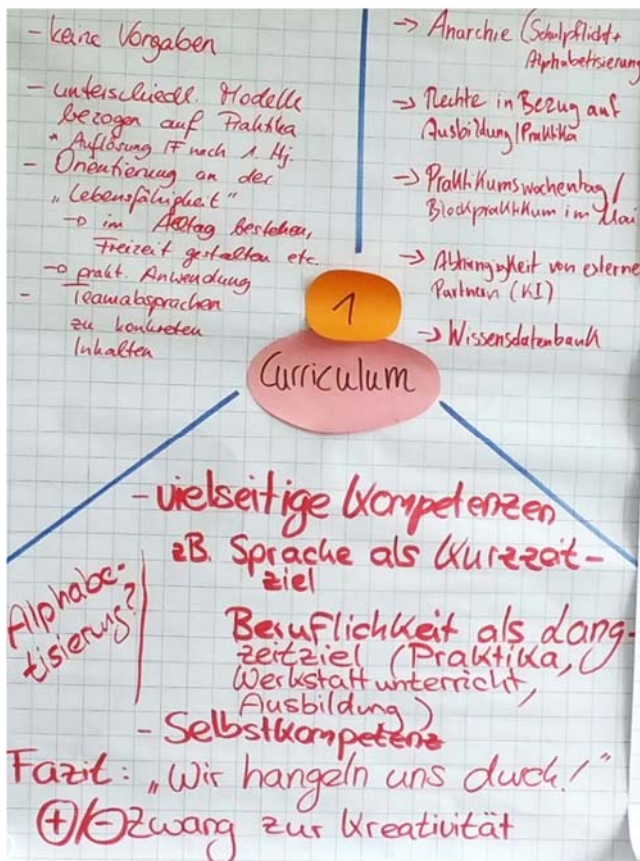 - keine Vorgaben
- unterschiedl. Modelle
bezogen auf Praktika
* Auflösung IF nach 1. Hj.
- Orientierung an der
„Lebensfähigkeit"
→ im Alltag bestehen,
Freizeit gestalten etc.
→ prakt. Anwendung
- Teamabsprachen
zu konkreten
Inhalten
→ Anarchie (Schulpflicht +
Alphabetisierung
→ Rechte in Bezug auf
Ausbildung/Praktika
→ Praktikumswochentag/
Blockpraktikum im Mai
→ Abhängigkeit von externe
Partnern (KI)
→ Wissensdatenbank
1
Curriculum
- vielseitige Kompetenzen
zB. Sprache als Kurzzeit-
ziel
Alphabe-
tisierung?
Beruflichkeit als Lang-
zeitziel (Praktika,
Werkstattunterricht,
Ausbildung)
- Selbstkompetenz
Fazit: „Wir hangeln uns durch!"
+/- Zwang zur Kreativität